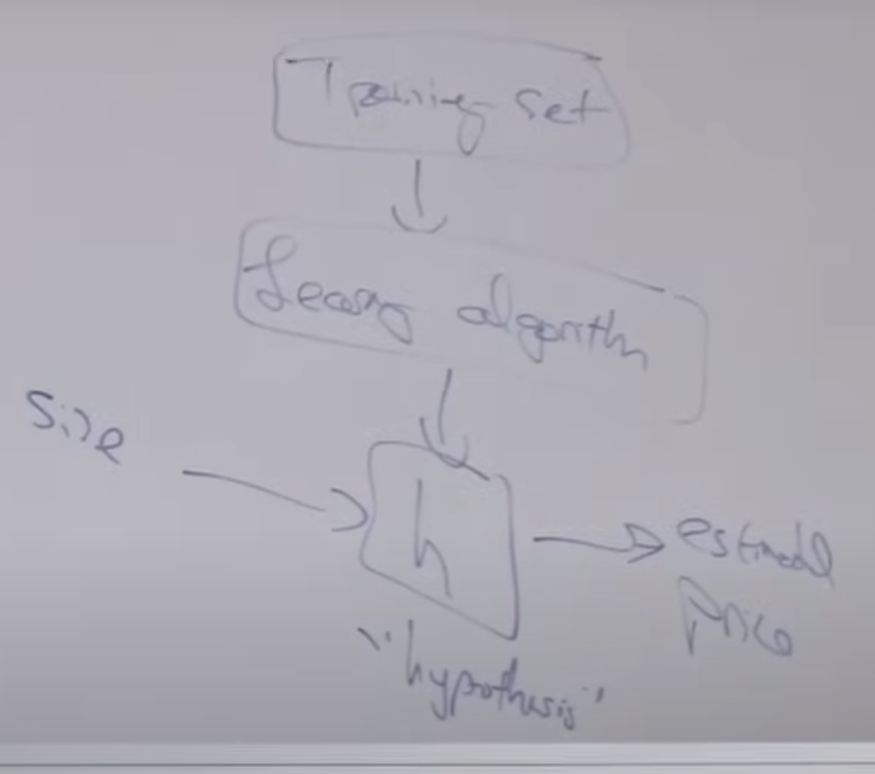 Training set
Learning algorithm
size
h
estimated
price
"hypothesis"